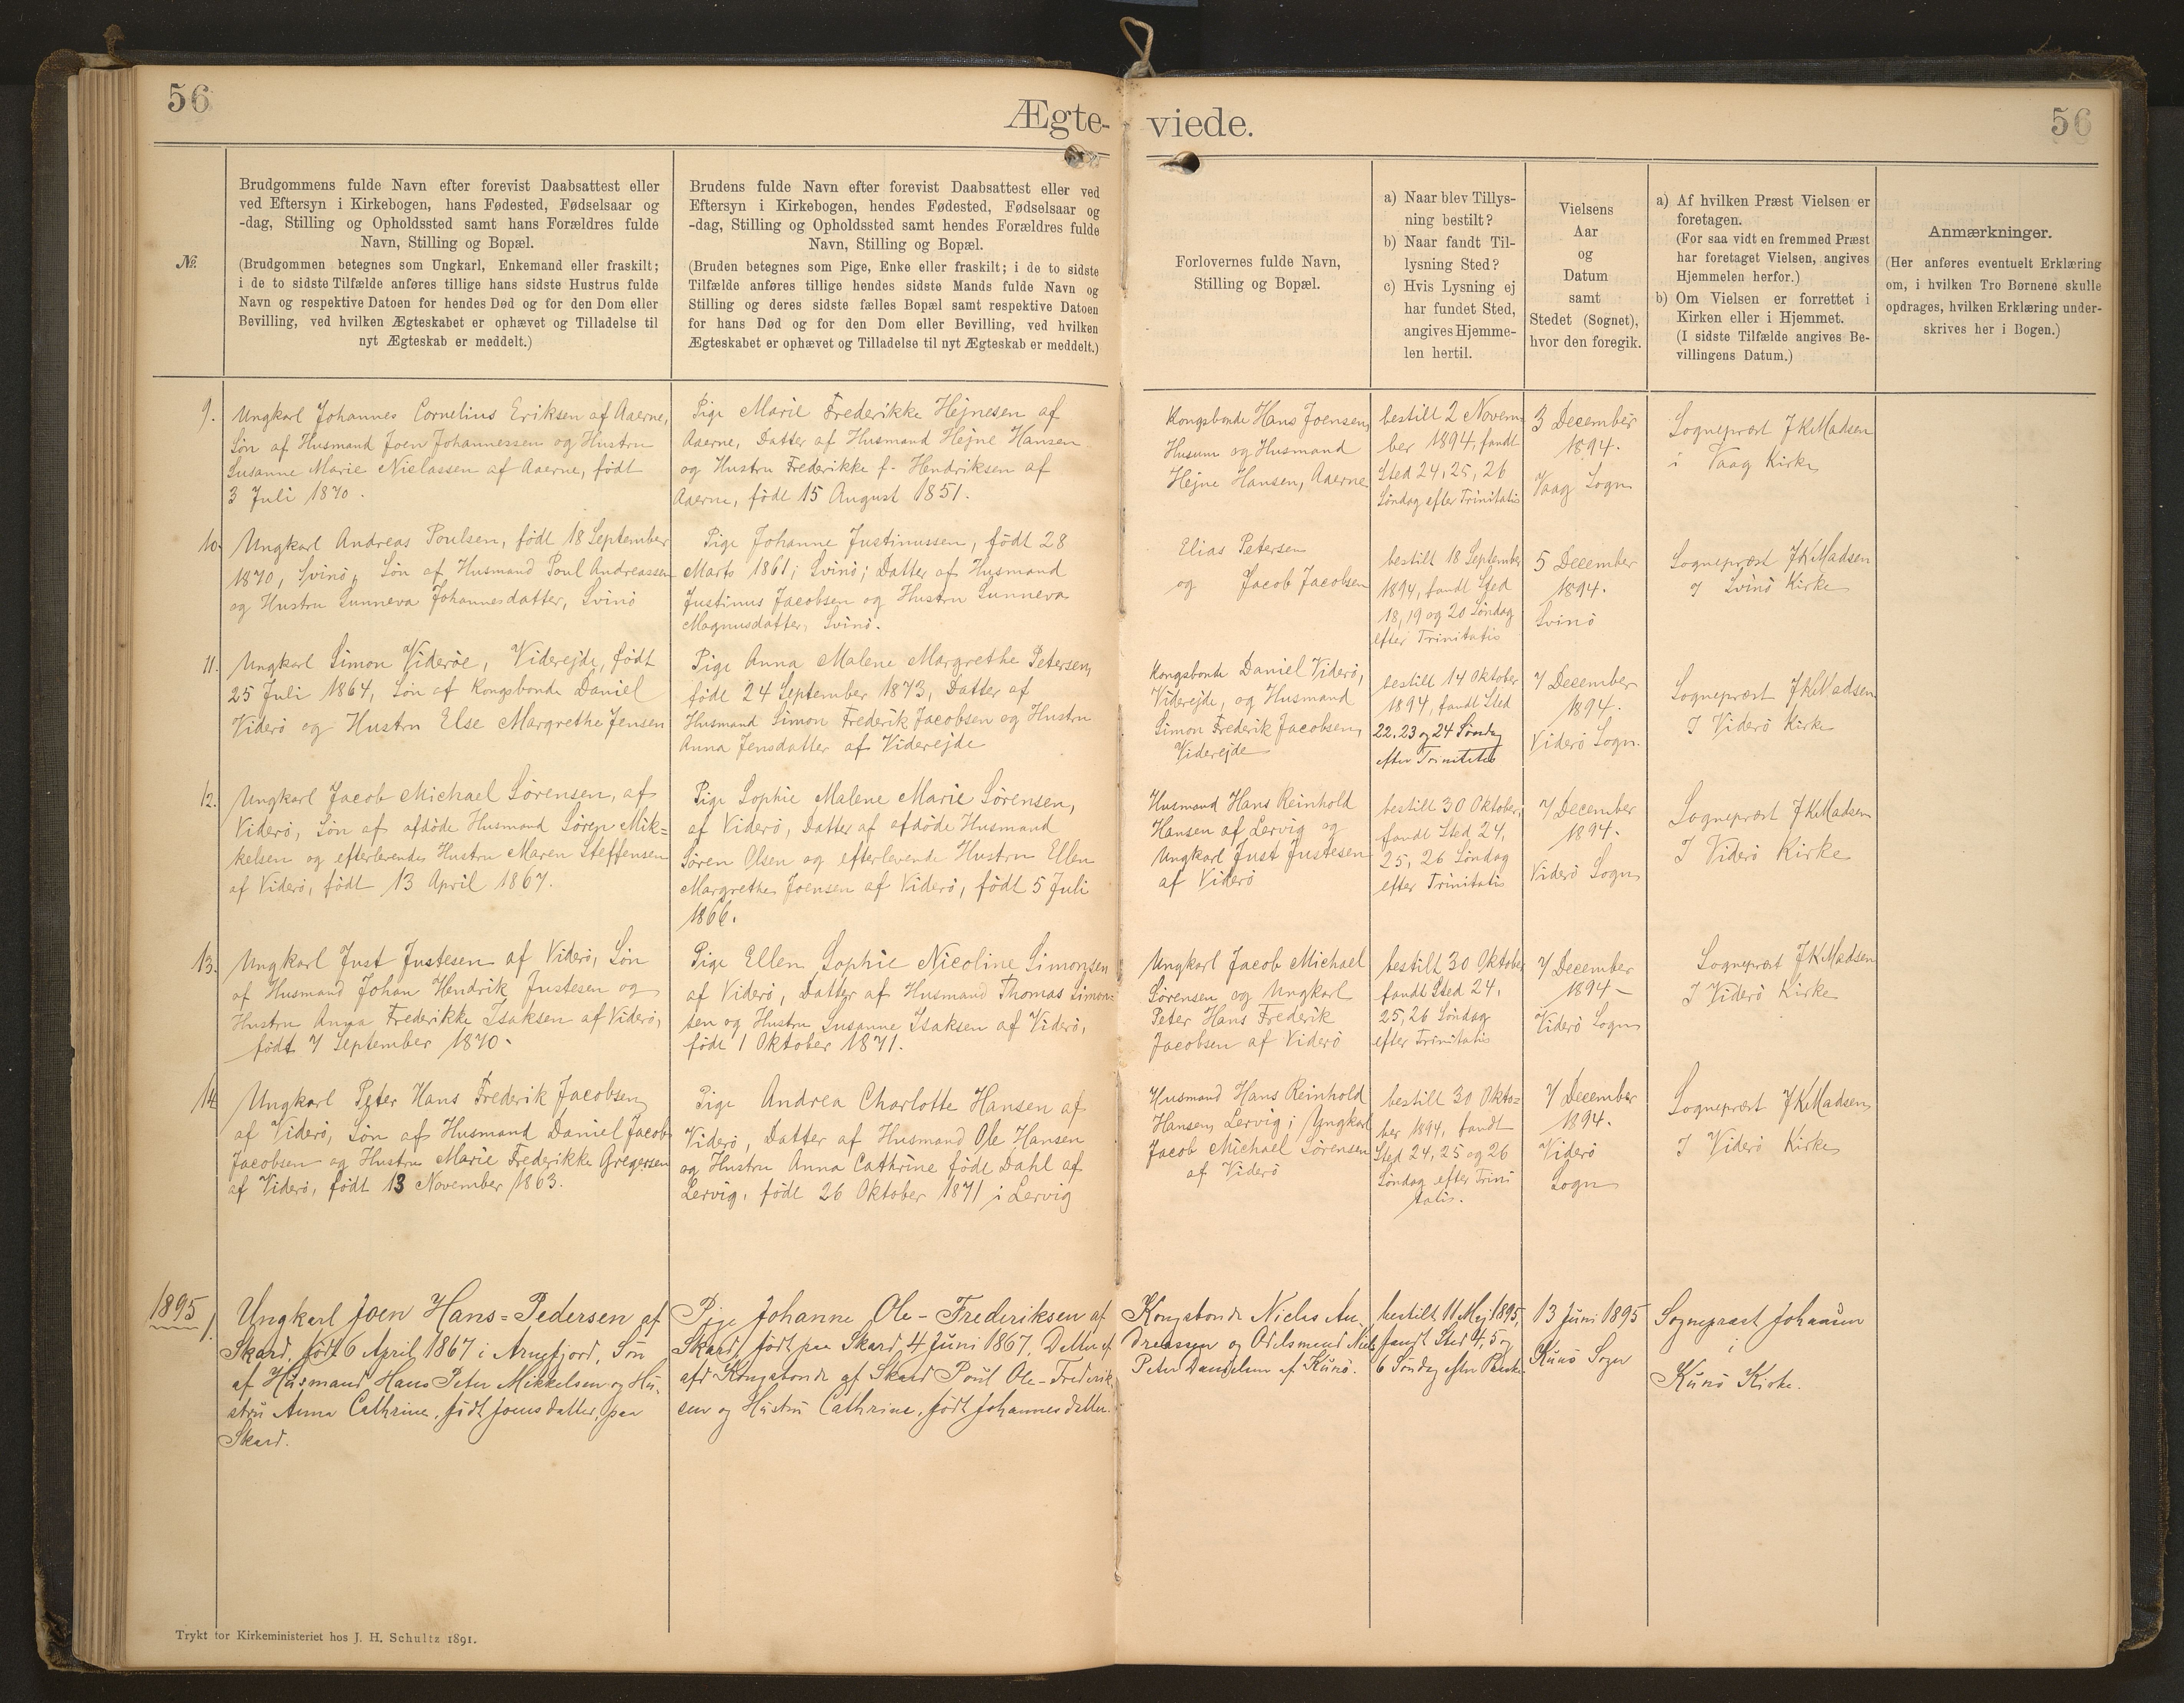 56
Ægte-
viede.
56
№.
Brudgommens fulde Navn efter forevist Daabsattest eller
ved Eftersyn i Kirkebogen, hans Fødested, Fødselsaar og
-dag, Stilling og Opholdssted samt hans Forældres fulde
Navn, Stilling og Bopæl.
(Brudgommen betegnes som Ungkarl, Enkemand eller fraskilt;
i de to sidste Tilfælde anføres tillige hans sidste Hustrus fulde
Navn og respektive Datoen for hendes Død og for den Dom eller
Bevilling, ved hvilken Ægteskabet er ophævet og Tilladelse til
nyt Ægteskab er meddelt.)
Brudens fulde Navn efter forevist Daabsattest eller ved
Eftersyn i Kirkebogen, hendes Fødested, Fødselsaar og
-dag, Stilling og Opholdssted samt hendes Forældres fulde
Navn, Stilling og Bopæl.
(Bruden betegnes som Pige, Enke eller fraskilt; i de to sidste
Tilfælde anføres tillige hendes sidste Mands fulde Navn og
Stilling og deres sidste fælles Bopæl samt respektive Datoen
for hans Død og for den Dom eller Bevilling, ved hvilken
Ægteskabet er ophævet og Tilladelse til nyt Ægteskab er meddelt.)
Forlovernes fulde Navn,
Stilling og Bopæl.
a) Naar blev Tillys-
ning bestilt?
b) Naar fandt Til-
lysning Sted?
c) Hvis Lysning ej
har fundet Sted,
angives Hjemme-
len hertil.
Vielsens
Aar
og
Datum
samt
Stedet (Sognet),
hvor den foregik.
a) Af hvilken Præst Vielsen er
foretagen.
(For saa vidt en fremmed Præst
har foretaget Vielsen, angives
Hjemmelen herfor.)
b) Om Vielsen er forrettet i
Kirken eller i Hjemmet.
(I sidste Tilfælde angives Be-
villingens Datum.)
Anmærkninger.
(Her anføres eventuelt Erklæring
om, i hvilken Tro Børnene skulle
opdrages, hvilken Erklæring under-
skrives her i Bogen.)
9.
Ungkarl Johannes Cornelius Eriksen af Aaerne,
Søn af Husmand Joen Johannessen og Hustru
Susanne Marie Niclassen af Aaerne, født
3 Juli 1870.
Pige Marie Frederikke Hejnesen af
Aaerne, Datter af Husmand Hejne Hansen
og Hustru Frederikke f. Hendriksen af
Aaerne, født 15 August 1851.
Kongsbonde Hans Joensen,
Husum og Husmand
Hejne Hansen, Aaerne
bestilt 2 Novem-
ber 1894, fandt
Sted 24, 25, 26
Søndag efter Trinitatis
3 December
1894.
Vaag Sogn
Sognepræst JKMadsen
i Vaag Kirke
10.
Ungkarl Andreas Poulsen, født 18 September
1870, Svinö, Søn af Husmand Poul Andreassen
og Hustru Sunneva Johannesdatter, Svinö
Pige Johanne Justinussen, født 28
Marts 1861; Svinö; Datter af Husmand
Justinus Jacobsen og Hustru Sunneva
Magnusdatter, Svinö.
Elias Petersen
og Jacob Jacobsen
bestilt 18 September
1894, fandt Sted
18, 19 og 20 Søndag
efter Trinitatis
5 December
1894.
Svinö
Sognepræst JKMadsen
I Svinö Kirke
11.
Ungkarl Simon Viderøe, Viderejde, født
25 Juli 1864, Søn af Kongsbonde Daniel
Viderö og Hustru Else Margrethe Jensen
Pige Anna Malene Margrethe Petersen,
født 24 September 1873, Datter af
Husmand Simon Frederik Jacobsen og Hustru
Anna Jensdatter af Viderejde
Kongsbonde Daniel Viderö,
Viderejde, og Husmand
Simon Frederik Jacobsen,
Viderejde
bestilt 14 Oktober
1894, fandt Sted
22. 23 og 24 Søndag
efter Trinitatis
7 December
1894.
Viderö Sogn.
Sognepræst JKMadsen
I Viderö Kirke
12.
Ungkarl Jacob Michael Sørensen, af
Viderö, Søn af afdøde Husmand Søren Mik=
kelsen og efterlevende Hustru Maren Steffensen
af Viderö, født 13 April 1867.
Pige Sophie Malene Marie Sørensen,
af Viderö, Datter af afdøde Husmand
Søren Olsen og efterlevende Hustru Ellen
Margrethe Joensen af Viderö, født 5 Juli
1866.
Husmand Hans Reinhold
Hansen af Lervig og
Ungkarl Just Justesen
af Viderö
bestilt 30 Oktober,
fandt Sted 24,
25, 26 Søndag
efter Trinitatis
7 December
1894.
Viderö Sogn
Sognepræst JKMadsen
I Viderö Kirke
13.
Ungkarl Just Justesen af Viderö, Søn
af Husmand Johan Hendrik Justesen og
Hustru Anna Frederikke Isaksen af Viderö,
født 7 September 1870.
Pige Ellen Sophie Nicoline Simonsen
af Viderö, Datter af Husmand Thomas Simon=
sen og Hustru Susanne Isaksen af Viderö,
født 1 Oktober 1871.
Ungkarl Jacob Michael
Sørensen og Ungkarl
Peter Hans Frederik
Jacobsen af Viderö
bestilt 30 Oktober
fandt Sted 24,
25, 26 Søndag
efter Trinitatis
7 December
1894
Viderö Sogn
Sognepræst JKMadsen
I Viderö Kirke
14
Ungkarl Peter Hans Frederik Jacobsen
af Viderö, Søn af Husmand Daniel Jacob
Jacobsen og Hustru Marie Frederikke Gregersen
af Viderö, født 13 November 1863.
Pige Andrea Charlotte Hansen af
Viderö, Datter af Husmand Ole Hansen
og Hustru Anna Cathrine født Dahl af
Lervig, født 26 Oktober 1871 i Lervig
Husmand Hans Reinhold
Hansen, Lervig; Ungkarl
Jacob Michael Sørensen
af Viderö
bestilt 30 Okto=
ber 1894, fandt
Sted 24, 25 og 26
Søndag efter Trini
tatis.
7 December
1894.
Viderö
Sogn
Sognepræst JKMadsen
I Viderö Kirke
1895
1.
Ungkarl Joen Hans=Pedersen af
Skard, født 6 April 1867 i Arnefjord, Søn
af Husmand Hans Peter Mikkelsen og Hu-
stru Anna Cathrine, født Joensdatter, paa
Skard.
Pige Johanne Ole-Frederiksen af
Skard, født paa Skard 4 Juni 1867, Datter af
afd Kongsbonde af Skard Poul Ole-Frederik
sen og Hustru Cathrine, født Johannesdatter.
Kongsbonde Niels An-
dreassen og Odelsmand Niels
Peter Danielsen af Kunö.
bestilt 11 Mej 1895,
fandt Sted 4, 5 og
6 Søndag efter Paaske
13 Juni 1895
Kunö Sogn
Sognepræst Johansen
i
Kunö Kirke.
Trykt for Kirkeministeriet hos J. H. Schultz 1891.